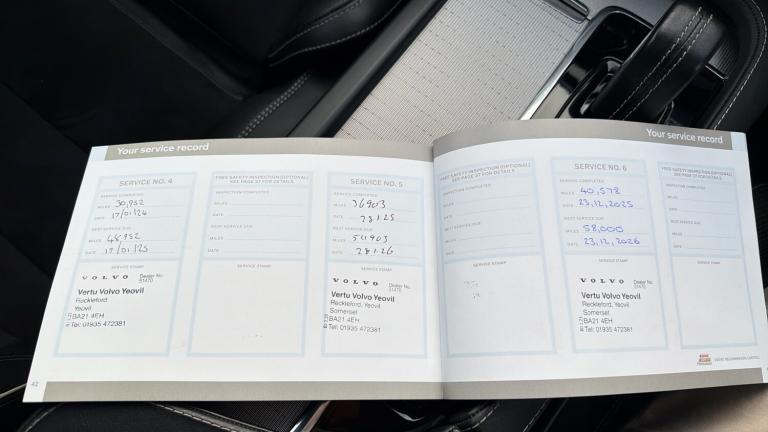 Your service record
SERVICE NO. 4
SERVICE COMPLETED:
MILES 30,952
DATE 17/01/24
NEXT SERVICE DUE
MILES 48,952
DATE 17/01/25
SERVICE STAMP
VOLVO Dealer No. 51470
Vertu Volvo Yeovil
Reckleford
Yeovil
BA21 4EH
Tel: 01935 472381
FREE SAFETY INSPECTION (OPTIONAL)
SEE PAGE 37 FOR DETAILS
INSPECTION COMPLETED:
MILES
DATE
NEXT SERVICE DUE
MILES
DATE
SERVICE STAMP
SERVICE NO. 5
SERVICE COMPLETED:
MILES 36903
DATE 28125
NEXT SERVICE DUE
MILES 54903
DATE 28·1·26
SERVICE STAMP
VOLVO Dealer No. 51470
Vertu Volvo Yeovil
Reckleford, Yeovil
Somerset
BA21 4EH
Tel: 01935 472381
42
Your service record
FREE SAFETY INSPECTION (OPTIONAL)
SEE PAGE 37 FOR DETAILS
INSPECTION COMPLETED:
MILES
DATE
NEXT SERVICE DUE
MILES
DATE
SERVICE STAMP
SERVICE NO. 6
SERVICE COMPLETED:
MILES 40,578
DATE 23.12.2025
NEXT SERVICE DUE
MILES 58,000
DATE 23.12.2026
SERVICE STAMP
VOLVO Dealer No. 51470
Vertu Volvo Yeovil
Reckleford, Yeovil
Somerset
BA21 4EH
Tel: 01935 472381
FREE SAFETY INSPECTION (OPTIONAL)
SEE PAGE 37 FOR DETAILS
INSPECTION COMPLETED:
MILES
DATE
NEXT SERVICE DUE
MILES
DATE
SERVICE STAMP
VOLVO RECOMMENDS CASTROL